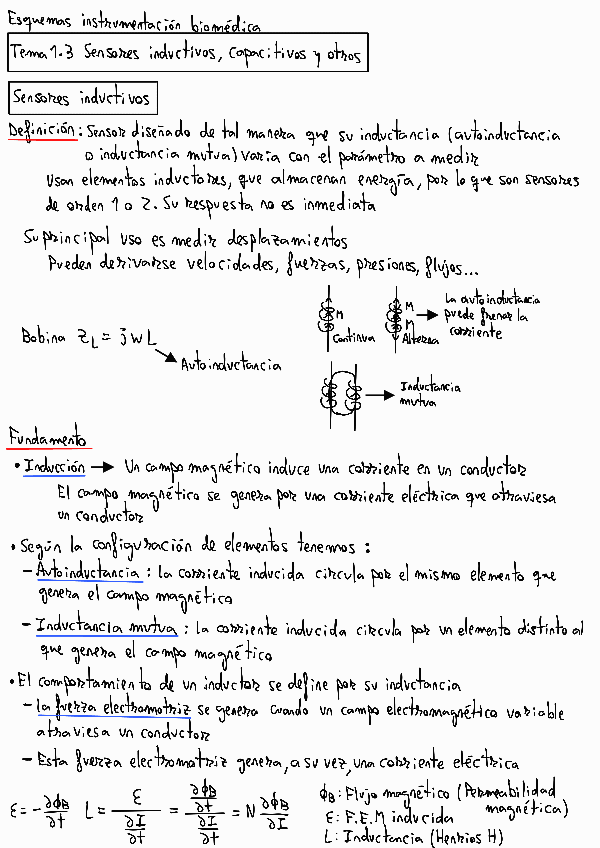 Esquemas instrumentación biomédica
Tema 1.3 Sensores inductivos, capacitivos y otros
Sensores inductivos
Definición: Sensor diseñado de tal manera que su inductancia (autoinductancia
o inductancia mutua) varía con el parámetro a medir
Usan elementos inductores, que almacenan energía, por lo que son sensores
de orden 1 o 2. Su respuesta no es inmediata
Su principal uso es medir desplazamientos
Pueden derivarse velocidades, fuerzas, presiones, flujos...
M
Continua
M
M
Alterna
La autoinductancia
puede frenar la
corriente
Bobina Z_L = jwL
Autoinductancia
Inductancia
mutua
Fundamento
• Inducción → Un campo magnético induce una corriente en un conductor
El campo magnético se genera por una corriente eléctrica que atraviesa
un conductor
• Según la configuración de elementos tenemos:
- Autoinductancia: la corriente inducida circula por el mismo elemento que
genera el campo magnético
- Inductancia mutua: la corriente inducida circula por un elemento distinto al
que genera el campo magnético
• El comportamiento de un inductor se define por su inductancia
- la fuerza electromotriz se genera cuando un campo electromagnético variable
atraviesa un conductor
- Esta fuerza electromotriz genera, a su vez, una corriente eléctrica
ε = -∂ϕ_B/∂t L = ε/(∂I/∂t) = (∂ϕ_B/∂t)/(∂I/∂t) = N ∂ϕ_B/∂I
ϕ_B: Flujo magnético (Permeabilidad
magnética)
ε: F.E.M inducida
L: Inductancia (Henrios H)